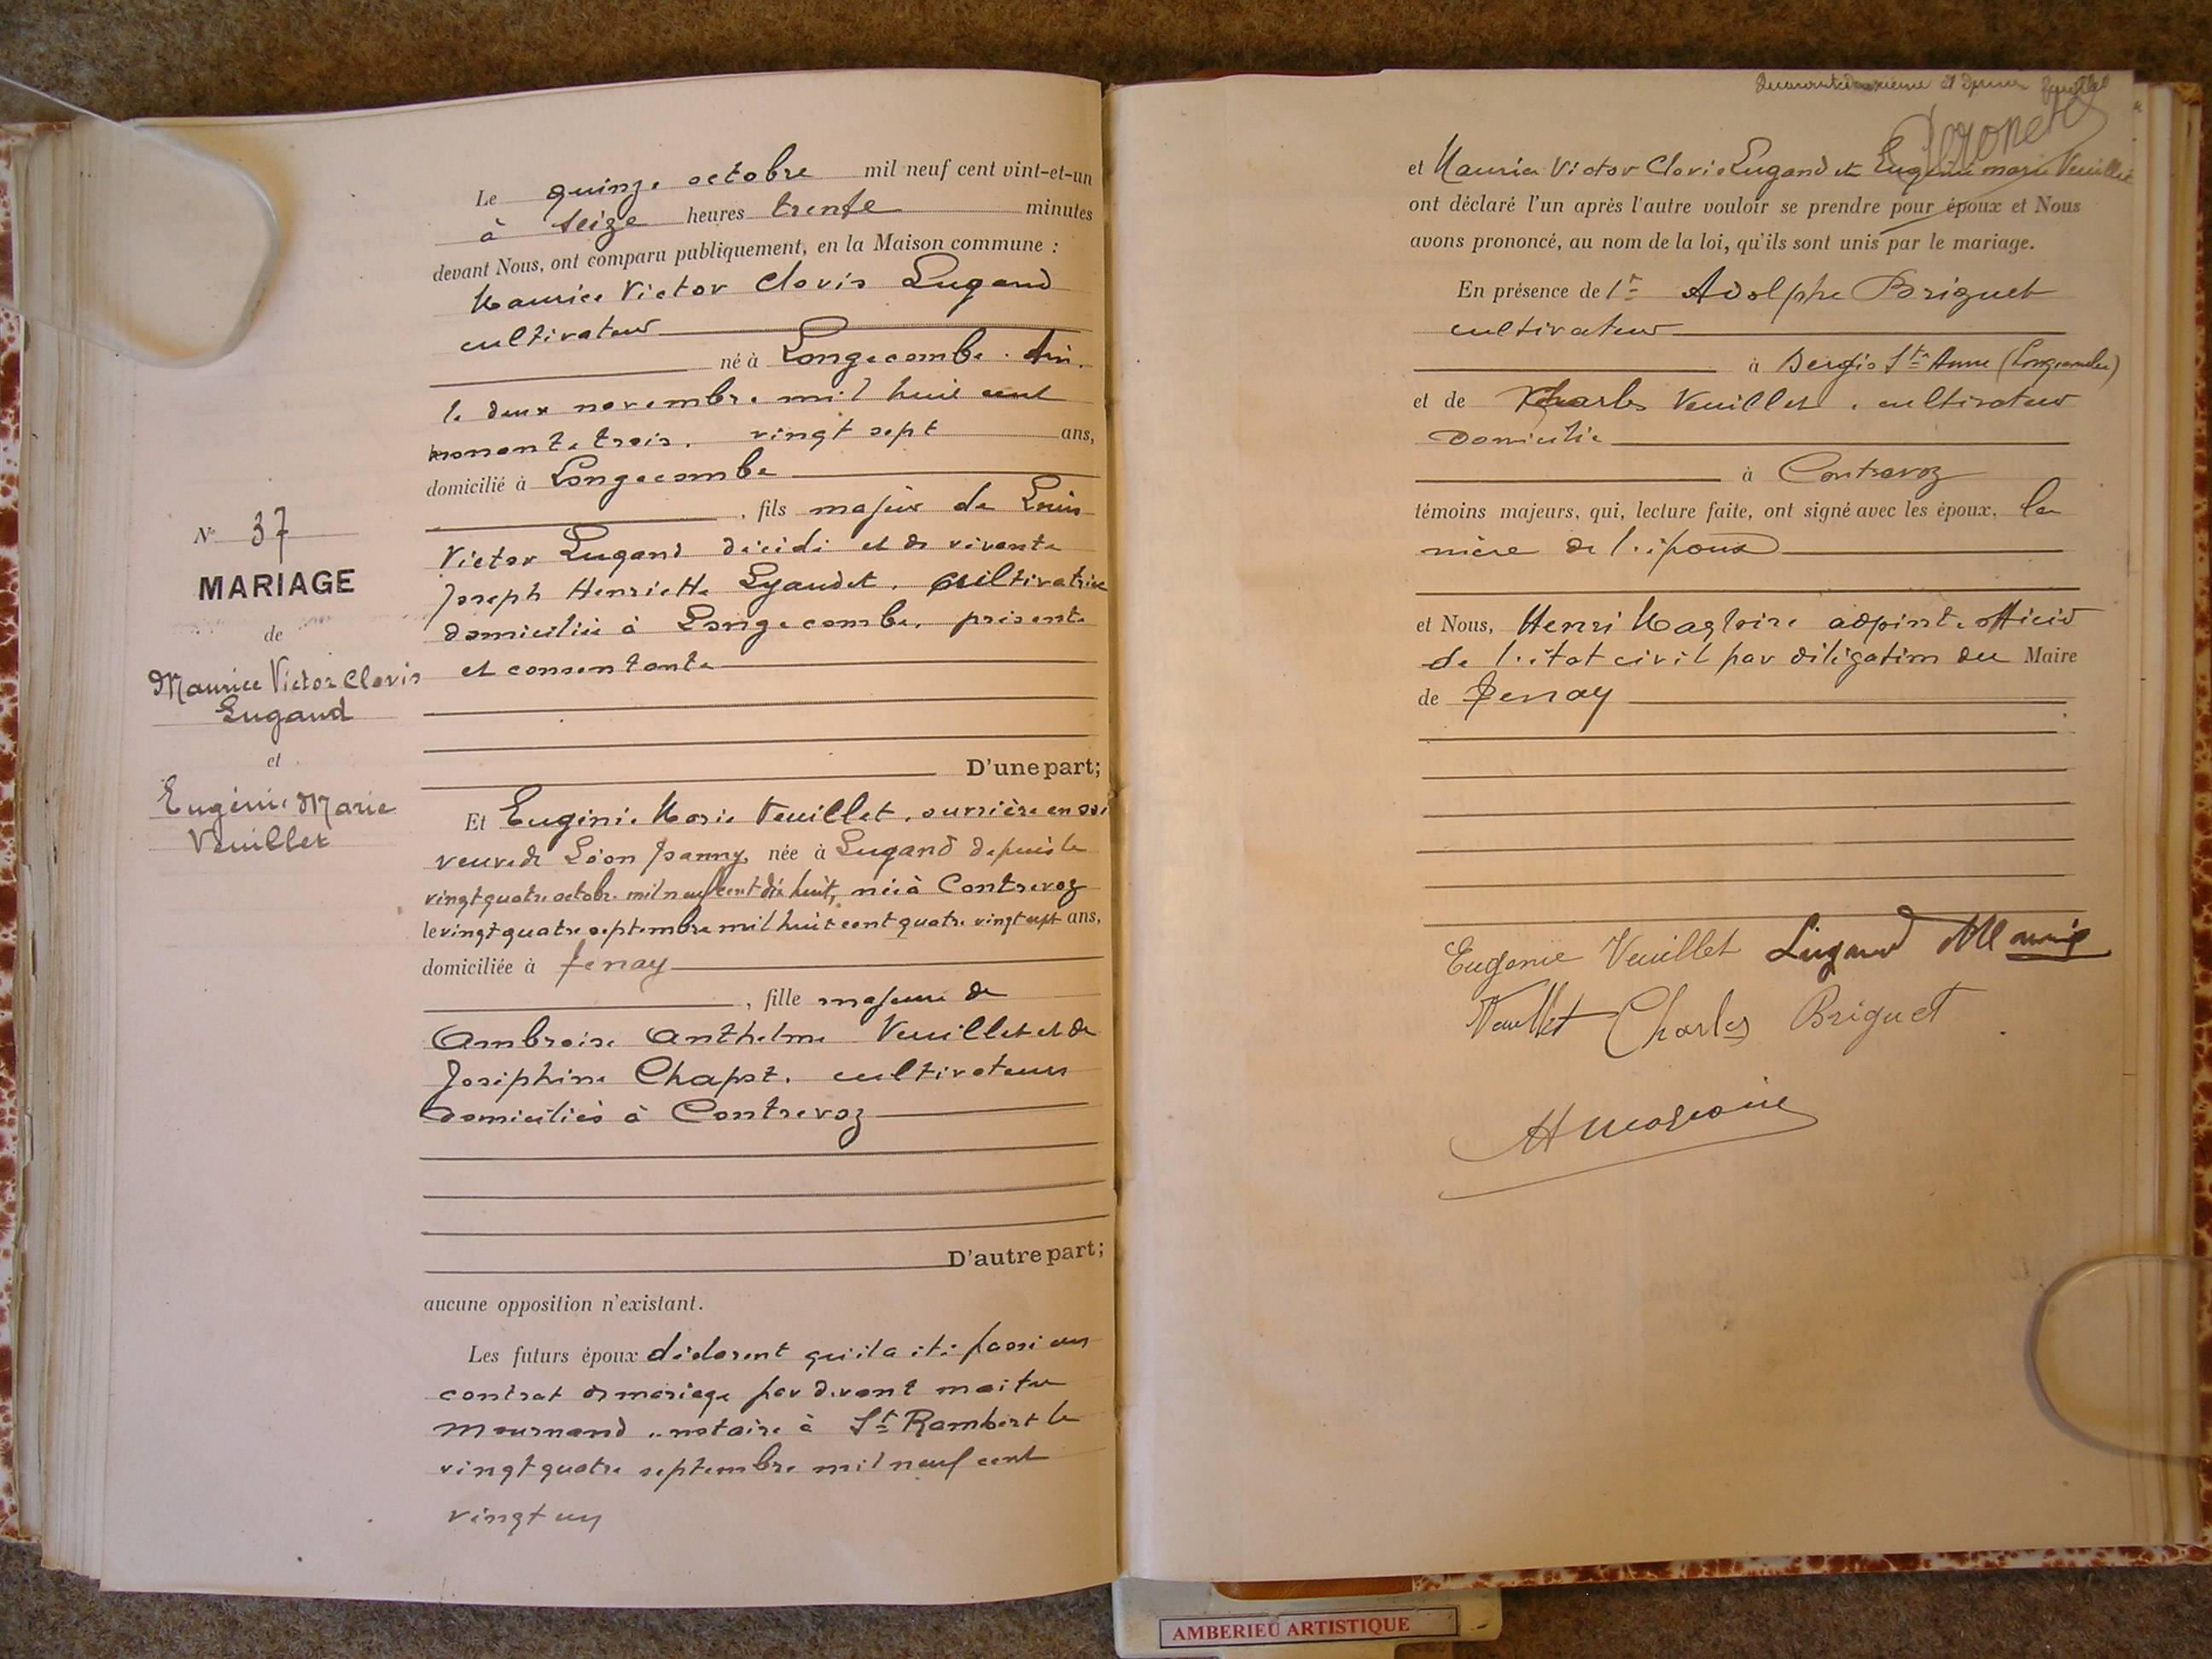 N° 37
MARIAGE
de
Maurice Victor Clovis
Lugand
et
Eugénie Marie
Veuillet
Le quinze octobre mil neuf cent vint-et-un
à seize heures trente minutes
devant Nous, ont comparu publiquement, en la Maison commune :
Maurice Victor Clovis Lugand
cultivateur
né à Longecombe. Ain.
le deux novembre mil huit cent
nonante trois. vingt sept ans,
domicilié à Longecombe
, fils majeur de Louis
Victor Lugand décédé et de vivante
Joseph Henriette Lyaudet. cultivatrice
domiciliée à Longecombe. présente
et consentante
D'une part;
Et Eugénie Marie Veuillet, ouvrière en soie
veuve de Léon Joanny, née à Lugand depuis le
vingt quatre octobre mil neuf cent dix huit, née à Contrevoz
le vingt quatre septembre mil huit cent quatre vingt sept ans,
domiciliée à Tenay
, fille majeure de
Ambroise Anthelme Veuillet et de
Joséphine Chapot. cultivateurs
domiciliés à Contrevoz
D'autre part;
aucune opposition n'existant.
Les futurs époux déclarent qu'il a été passé un
contrat de mariage par devant maître
Mournand notaire à St Rambert le
vingt quatre septembre mil neuf cent
vingt un
et dernier feuillet
et Maurice Victor Clovis Lugand et Eugénie Marie Veuillet
ont déclaré l'un après l'autre vouloir se prendre pour époux et Nous
avons prononcé, au nom de la loi, qu'ils sont unis par le mariage.
En présence de 1° Adolphe Briguet
cultivateur
à Ste Anne (Longecombe)
et de Charles Veuillet. cultivateur
domicilié
à Contrevoz
témoins majeurs, qui, lecture faite, ont signé avec les époux, la
mère de l'époux
et Nous, Henri Magloire adjoint officier
de l'état civil par délégation du Maire
de Tenay
Eugénie Veuillet Lugand Maurice
Veuillet Charles Briguet
H Magloire
AMBERIEU ARTISTIQUE